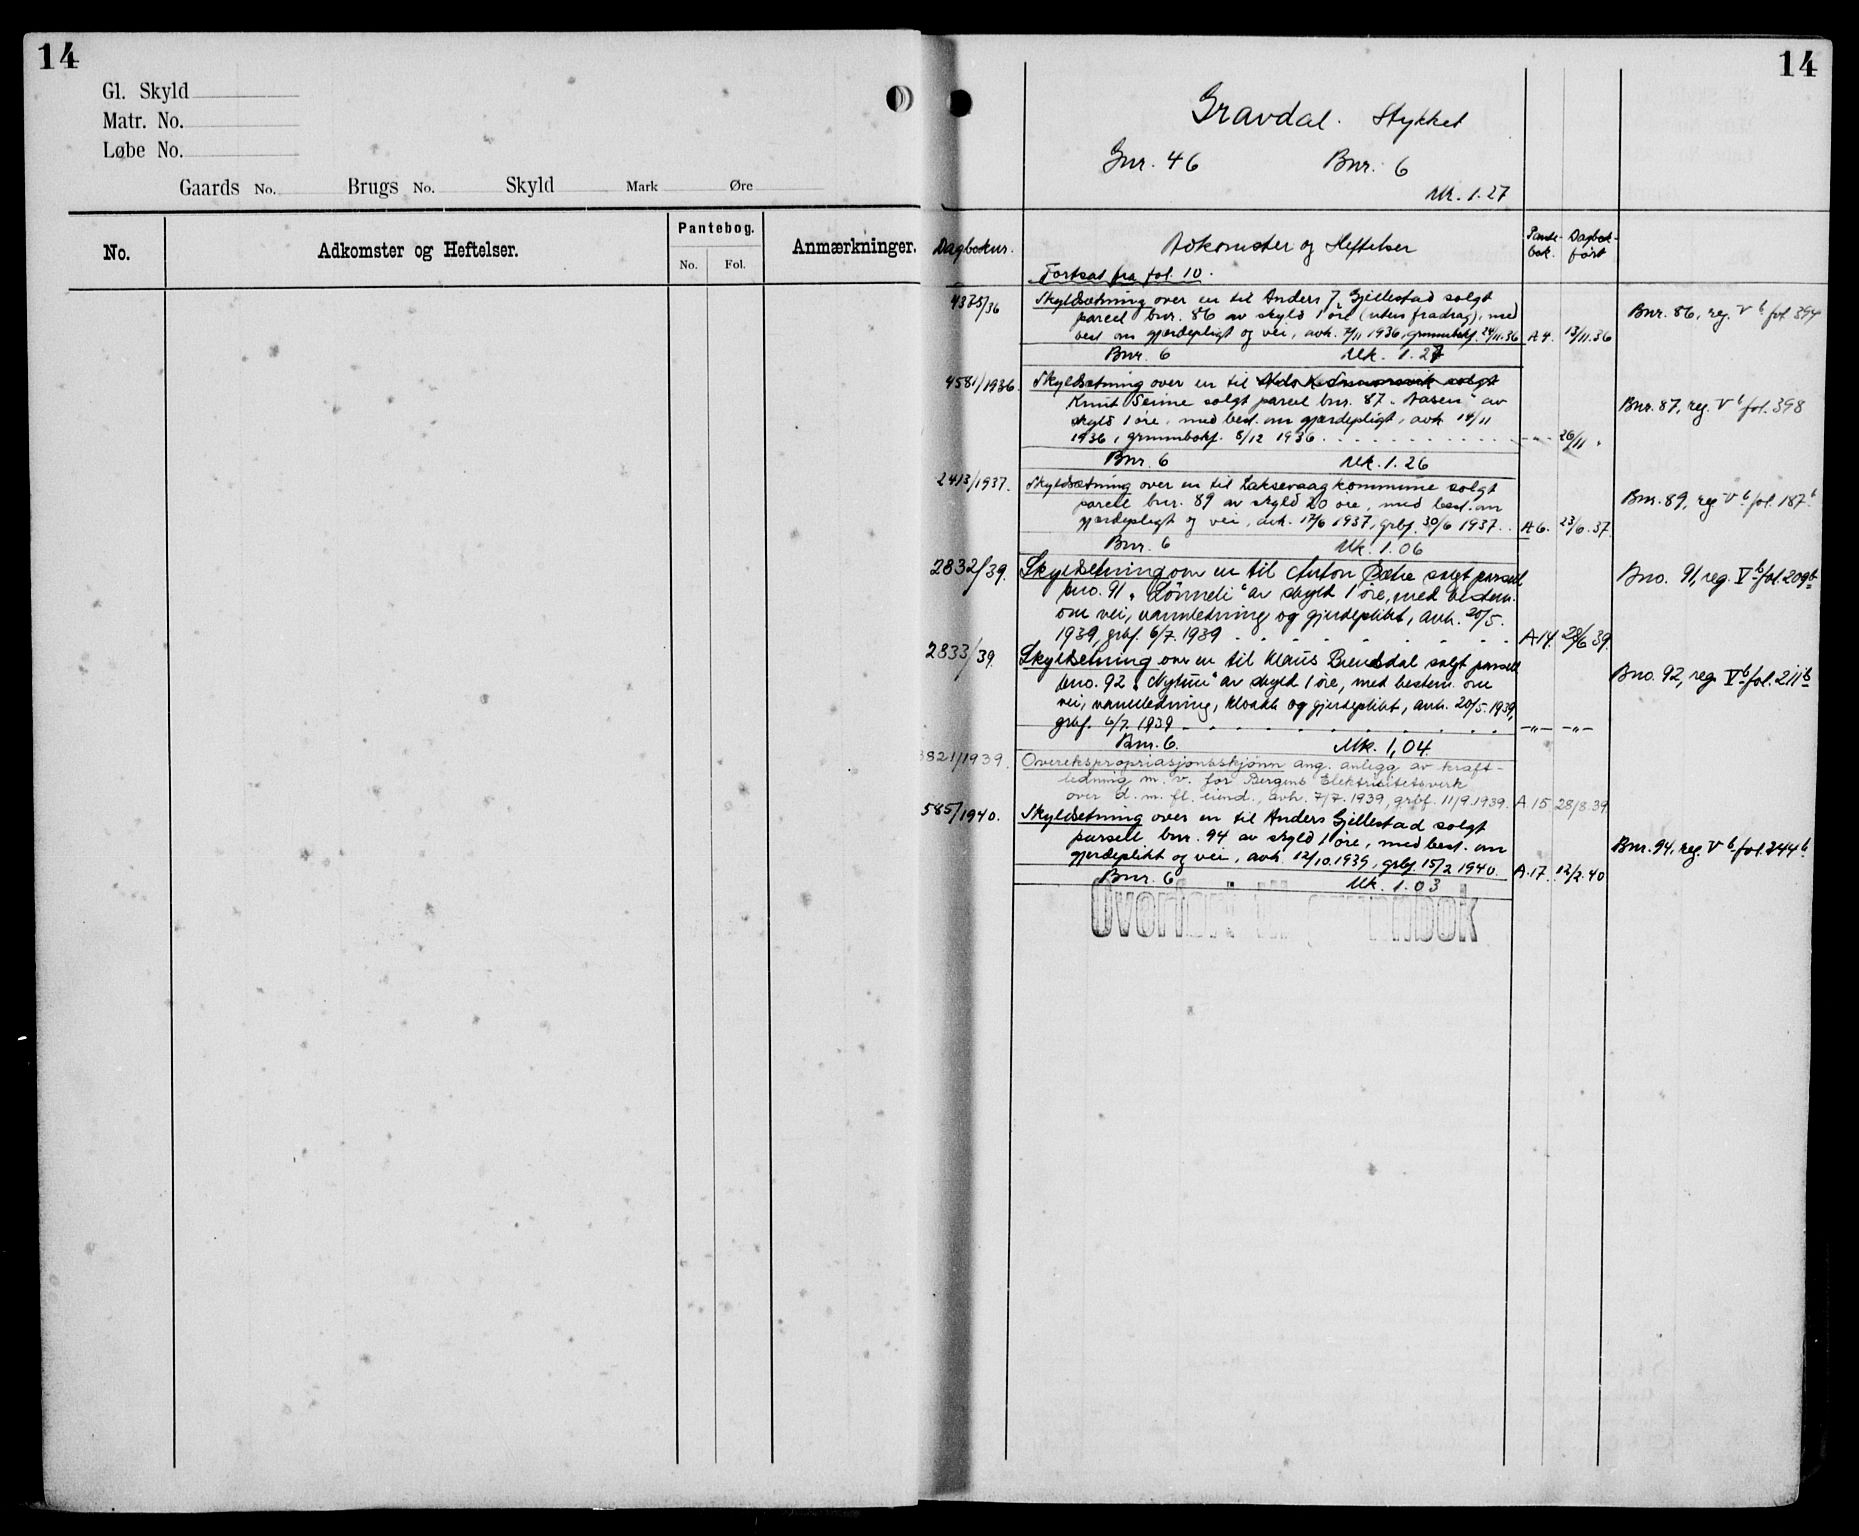 14
Gl. Skyld
Matr. No.
Løbe No.
Gaards No. Brugs No. Skyld Mark Øre
No. Adkomster og Heftelser. Pantebog. No. Fol. Anmærkninger.
14
Gravdal. Stykket
Gnr. 46 Bnr. 6
Mk. 1.27
Dagboknr. Adkomster og Heftelser Pante- bok. Dagbok- ført
Fortsat fra fol. 10.
4375/36 Skyldsætning over en til Anders J. Gjellestad solgt
parcel bnr. 86 av skyld 1 øre (uten fradrag), med Bnr. 86, reg. V b fol. 394
best om gjærdepligt og vei, avh. 7/11 1936, grunnbokf. 24/11.36 A 4. 13/11.36
Bnr. 6 Mk. 1.27
4581/1936. Skyldsætning over en til solgt
Knut Seime solgt parcel bnr. 87 „Aasen" av Bnr. 87, reg. V b fol. 398
skyld 1 øre, med best. om gjærdepligt, avh 14/11
1936, grunnbokf. 8/12 1936 - - - 26/11 "
Bnr. 6 Mk. 1.26
2413/1937. Skyldsætning over en til Laksevaag kommune solgt
parcel bnr. 89 av skyld 20 øre, med best. om Bnr. 89, reg V b fol. 187 b
gjærdepligt og vei, avh. 17/6 1937, grbf. 30/6 1937. A 6. 23/6.37.
Bnr. 6 Mk. 1.06
2832/39. Skyldsetning over en til Anton Sætre solgt parsell
bno. 91 „Lønneli" av skyld 1 øre, med bestem. Bno. 91, reg. V b fol. 209 b
om vei, vannledning og gjerdeplikt, avh. 20/5.
1939, grbf. 6/7. 1939 A.14. 28/6 39.
2833/39. Skyldsetning over en til Klaus solgt parsell
bno. 92 „Nytun" av skyld 1 øre, med bestem. om Bno. 92, reg. V b fol. 211 b
vei, vannledning, kloakk og gjerdeplikt, avh. 20/5.1939,
grbf. 6/7. 1939 -"- -"-
Bnr. 6. Mk. 1,04.
3821/1939. Overekspropriasjonsskjønn ang. anlegg av kraft-
ledning m. v. for Bergens Elektricitetsverk
over d. m. fl. eiend., avh. 7/7. 1939, grbf. 11/9.1939. A 15 28/8.39
585/1940. Skyldsetning over en til Anders Gjellestad solgt
parsell bnr. 94 av skyld 1 øre, med best. om Bnr. 94, reg. V b fol. 244 b
gjerdeplikt og vei, avh. 12/10.1939, grbf. 15/2 1940. A.17. 12/2.40
Bnr. 6 Mk. 1.03
Overført til grunnbok